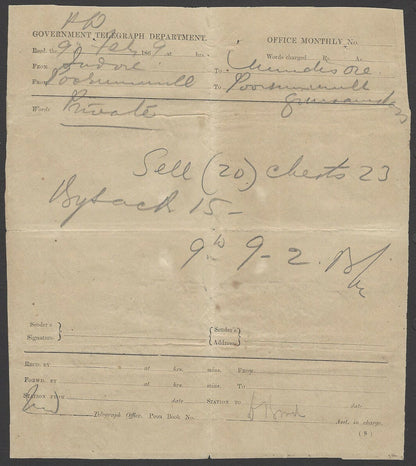 GOVERNMENT TELEGRAPH DEPARTMENT. OFFICE MONTHLY No.
Recd. the 9th Feby 1869 at hrs. Words charged Rs. A.
From Indore To
From Poorunmull To Poorunmull
Words Private
Sell (20) chests 23
Bysack 15 -
9 9 - 2.
Sender's Signature: Sender's Address:
RECD. BY at hrs. mins. FROM
FORWD. BY at hrs. mins. TO
STATION FROM date STATION TO date
Telegraph Office. Peon Book No. Asst. in charge.
( 8 )